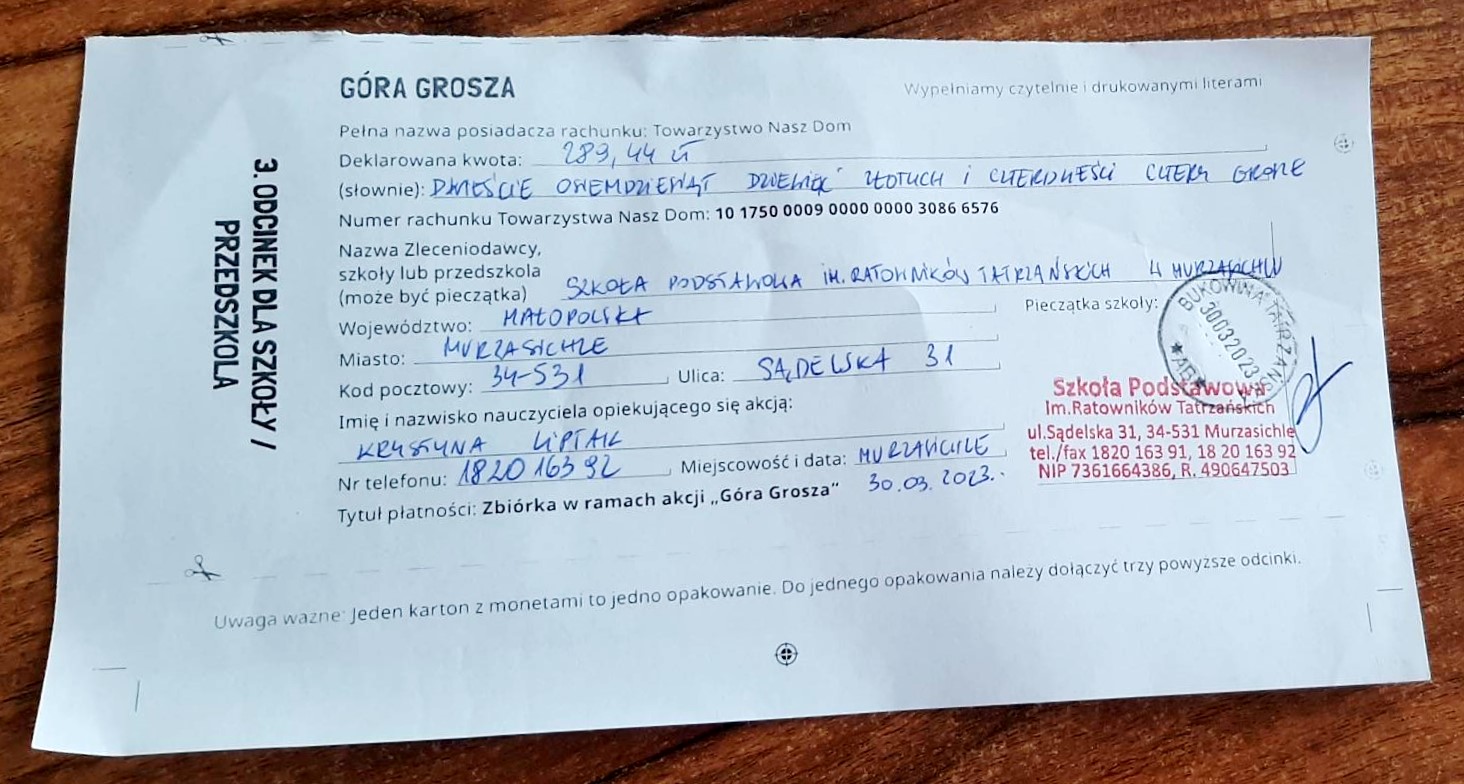 GÓRA GROSZA
Wypełniamy czytelnie i drukowanymi literami
3. ODCINEK DLA SZKOŁY /
PRZEDSZKOLA
Pełna nazwa posiadacza rachunku: Towarzystwo Nasz Dom
Deklarowana kwota: 289,44 zł
(słownie): DWIEŚCIE OSIEMDZIESIĄT DZIEWIĘĆ ZŁOTYCH I CZTERDZIEŚCI CZTERY GROSZE
Numer rachunku Towarzystwa Nasz Dom: 10 1750 0009 0000 0000 3086 6576
Nazwa Zleceniodawcy,
szkoły lub przedszkola
(może być pieczątka) SZKOŁA PODSTAWOWA IM. RATOWNIKÓW TATRZAŃSKICH W MURZASICHLU
Województwo: MAŁOPOLSKA
Pieczątka szkoły:
Miasto: MURZASICHLE
Kod pocztowy: 34-531 Ulica: SĄDELSKA 31
Imię i nazwisko nauczyciela opiekującego się akcją:
KRYSTYNA
Nr telefonu: 1820 163 92 Miejscowość i data: MURZASICHLE
30.03.2023.
Tytuł płatności: Zbiórka w ramach akcji „Góra Grosza”
BUKOWINA TATRZAŃSKA
30032023
Szkoła Podstawowa
Im.Ratowników Tatrzańskich
ul.Sądelska 31, 34-531 Murzasichle
tel./fax 1820 163 91, 18 20 163 92
NIP 7361664386, R. 490647503
Uwaga ważne: Jeden karton z monetami to jedno opakowanie. Do jednego opakowania należy dołączyć trzy powyższe odcinki.